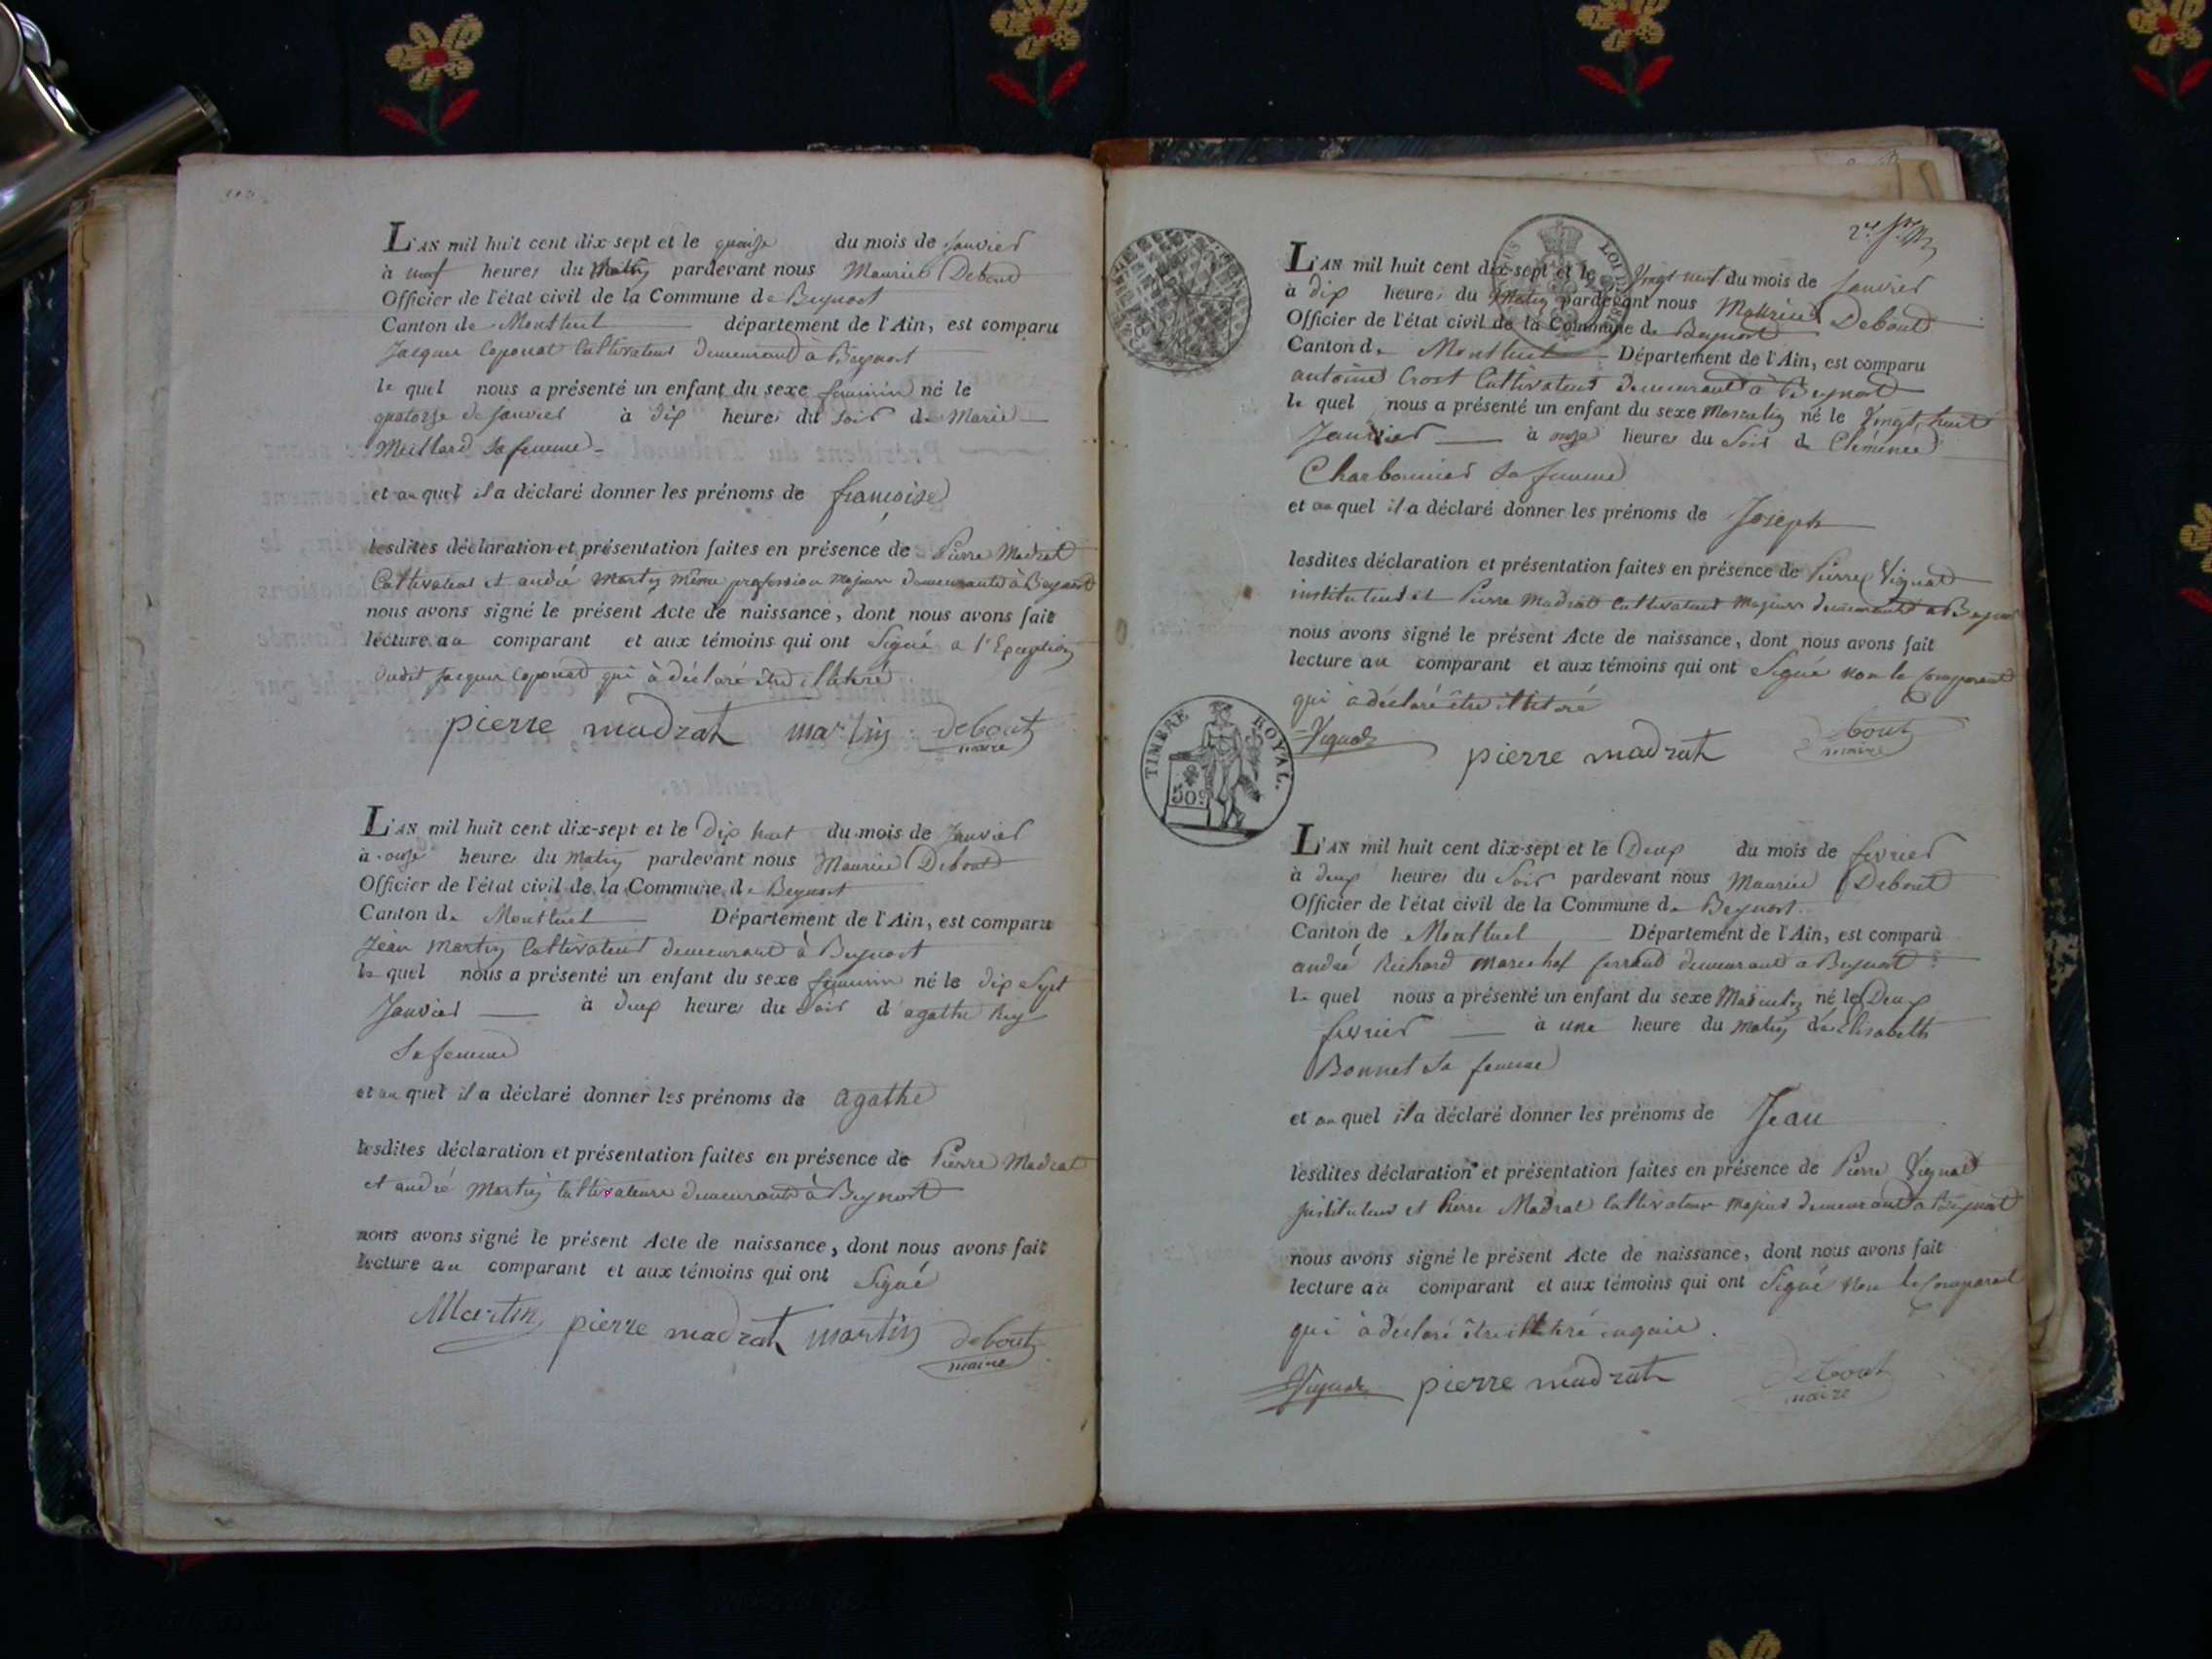 L'AN mil huit cent dix-sept et le quinze du mois de Janvier
à neuf heures du Matin pardevant nous Maurice Debout
Officier de l'état civil de la Commune de Beynost
Canton de Montluel département de l'Ain, est comparu
Jacques Caponat Cultivateur demeurant à Beynost
le quel nous a présenté un enfant du sexe féminin né le
quatorze de Janvier à dix heures du soir de Marie
Meillard sa femme
et au quel il a déclaré donner les prénoms de françoise
lesdites déclaration et présentation faites en présence de Pierre Madrat
Cultivateur et andré Martin même profession majeurs demeurants à Beynost
nous avons signé le présent Acte de naissance, dont nous avons fait
lecture au comparant et aux témoins qui ont Signé a l'Exception
dudit Jacques Caponat qui à déclaré être illitéré
pierre madrat martin debout
maire
L'AN mil huit cent dix-sept et le dix huit du mois de Janvier
à onze heures du matin pardevant nous Maurice Debout
Officier de l'état civil de la Commune de Beynost
Canton de Montluel Département de l'Ain, est comparu
Jean Martin Cultivateur demeurant à Beynost
le quel nous a présenté un enfant du sexe féminin né le dix Sept
Janvier à deux heures du Soir d'agathe Rey
Sa femme
et au quel il a déclaré donner les prénoms de agathe
lesdites déclaration et présentation faites en présence de Pierre Madrat
et andré Martin Cultivateurs demeurants à Beynost
nous avons signé le présent Acte de naissance, dont nous avons fait
lecture au comparant et aux témoins qui ont Signé
Martin pierre madrat martin debout
maire
L'AN mil huit cent dix-sept et le Vingt neuf du mois de Janvier
à dix heures du Matin pardevant nous Maurice Debout
Officier de l'état civil de la Commune de Beynost
Canton de Montluel Département de l'Ain, est comparu
antoine Crost Cultivateur demeurant à Beynost
le quel nous a présenté un enfant du sexe Masculin né le Vingt huit
Janvier à onze heures du Soir de Clémence
Charbonnier Sa femme
et au quel il a déclaré donner les prénoms de Joseph
lesdites déclaration et présentation faites en présence de Pierre Vignat
instituteur et Pierre Madrat Cultivateur Majeurs demeurants a Beynost
nous avons signé le présent Acte de naissance, dont nous avons fait
lecture au comparant et aux témoins qui ont Signé non le Comparant
qui à déclaré être illitéré
TIMBRE ROYAL.
Vignat pierre madrat debout
maire
L'AN mil huit cent dix-sept et le Deux du mois de fevrier
à deux heures du Soir pardevant nous Maurice Debout
Officier de l'état civil de la Commune de Beynost
Canton de Montluel Département de l'Ain, est comparu
andré Richard Marechal ferrand demeurant a Beynost
le quel nous a présenté un enfant du sexe Masculin né le Deux
fevrier à une heure du matin de Elisabeth
Bonnet Sa femme
et au quel il a déclaré donner les prénoms de Jean
lesdites déclaration et présentation faites en présence de Pierre Vignat
Instituteur et Pierre Madrat Cultivateur Majeurs demeurant a Beynost
nous avons signé le présent Acte de naissance, dont nous avons fait
lecture au comparant et aux témoins qui ont Signé non le Comparant
qui à déclaré être illitéré
Vignat pierre madrat debout
maire